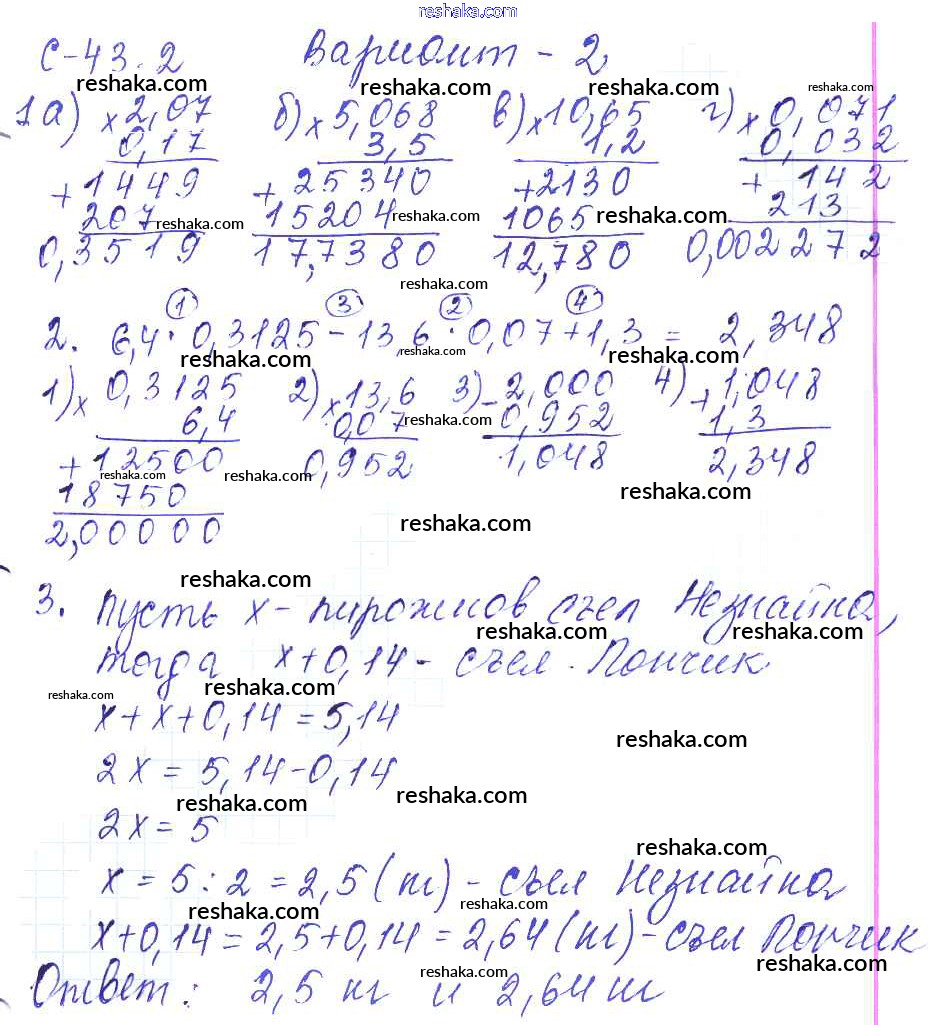 reshaka.com
С-43.2 Вариант - 2
reshaka.com reshaka.com reshaka.com reshaka.com
1 а) × 2,07 б) × 5,068 в) × 10,65 г) × 0,071
0,17 3,5 1,2 0,032
+ 1449 + 25340 + 2130 + 142
207 15204 1065 213
reshaka.com reshaka.com reshaka.com
0,3519 17,7380 12,780 0,002272
reshaka.com
① ③ ② ④
2. 6,4 · 0,3125 - 13,6 · 0,07 + 1,3 = 2,348
reshaka.com reshaka.com reshaka.com
1) × 0,3125 2) × 13,6 3) - 2,000 4) + 1,048
6,4 0,07 0,952 1,3
reshaka.com
+ 12500 0,952 1,048 2,348
reshaka.com reshaka.com reshaka.com
18750
2,00000
reshaka.com
reshaka.com
3. Пусть x - пирожков съел Незнайка,
reshaka.com reshaka.com
тогда x + 0,14 - съел Пончик
reshaka.com reshaka.com
x + x + 0,14 = 5,14
reshaka.com
2x = 5,14 - 0,14
reshaka.com reshaka.com
2x = 5
reshaka.com
x = 5 : 2 = 2,5 (кг) - съел Незнайка
reshaka.com reshaka.com
x + 0,14 = 2,5 + 0,14 = 2,64 (кг) - съел Пончик
reshaka.com reshaka.com
Ответ: 2,5 кг и 2,64 кг